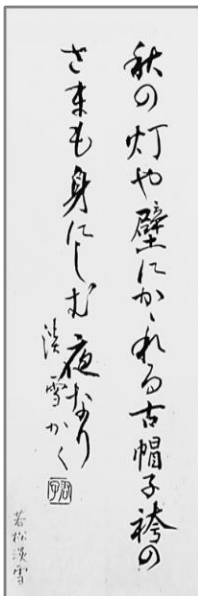 秋の灯や壁にかゝれる古帽子袴の
さまも身にしむ夜なり
淡雪かく
若松淡雪